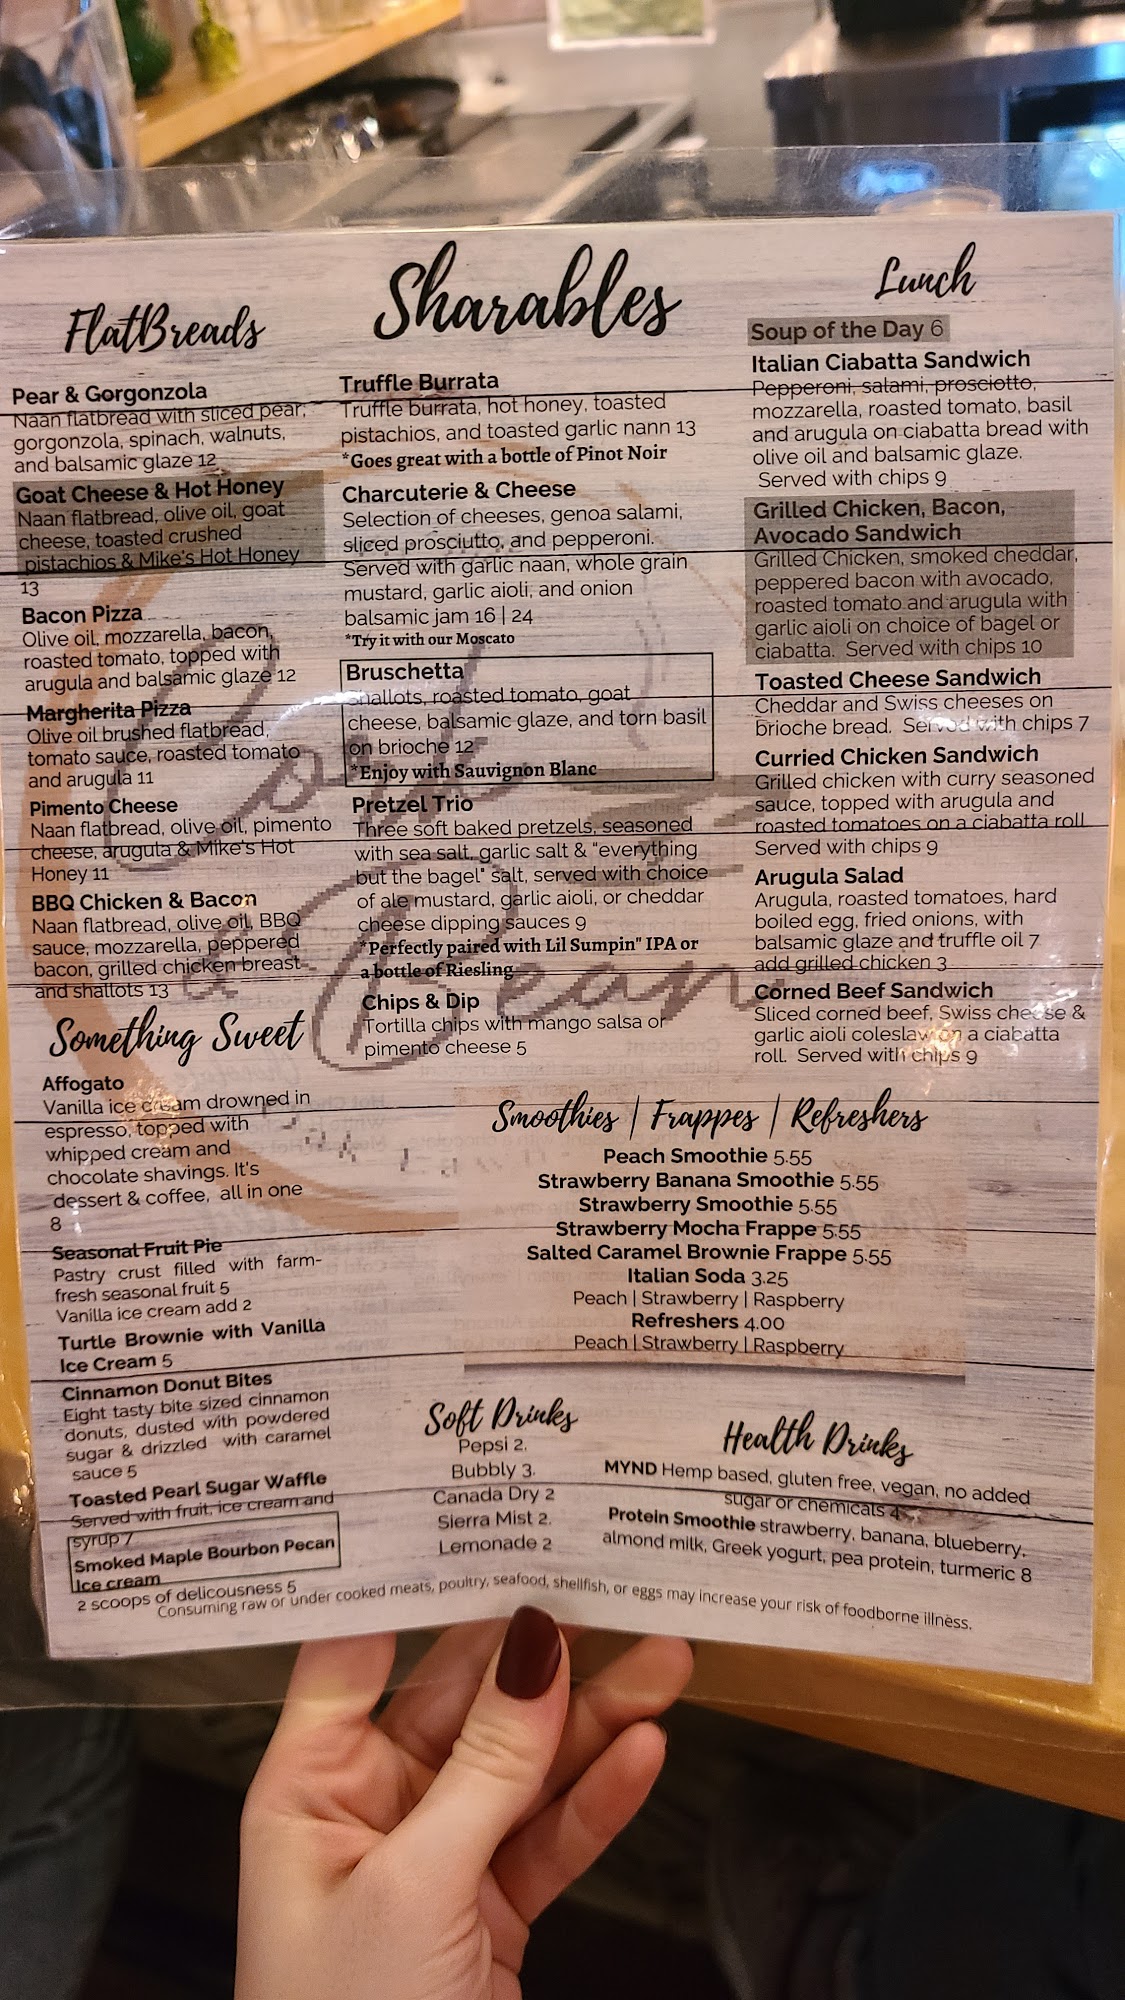 FlatBreads
Pear & Gorgonzola
Naan flatbread with sliced pear,
gorgonzola, spinach, walnuts,
and balsamic glaze 12
Goat Cheese & Hot Honey
Naan flatbread, olive oil, goat
cheese, toasted crushed
pistachios & Mike's Hot Honey
13
Bacon Pizza
Olive oil, mozzarella, bacon,
roasted tomato, topped with
arugula and balsamic glaze 12
Margherita Pizza
Olive oil brushed flatbread,
tomato sauce, roasted tomato
and arugula 11
Pimento Cheese
Naan flatbread, olive oil, pimento
cheese, arugula & Mike's Hot
Honey 11
BBQ Chicken & Bacon
Naan flatbread, olive oil, BBQ
sauce, mozzarella, peppered
bacon, grilled chicken breast
and shallots 13
Something Sweet
Affogato
Vanilla ice cream drowned in
espresso, topped with
whipped cream and
chocolate shavings. It's
dessert & coffee, all in one
8
Seasonal Fruit Pie
Pastry crust filled with farm-
fresh seasonal fruit 5
Vanilla ice cream add 2
Turtle Brownie with Vanilla
Ice Cream 5
Cinnamon Donut Bites
Eight tasty bite sized cinnamon
donuts, dusted with powdered
sugar & drizzled with caramel
sauce 5
Toasted Pearl Sugar Waffle
Served with fruit, ice cream and
syrup 7
Smoked Maple Bourbon Pecan
Ice cream
2 scoops of delicousness 5
Sharables
Truffle Burrata
Truffle burrata, hot honey, toasted
pistachios, and toasted garlic nann 13
*Goes great with a bottle of Pinot Noir
Charcuterie & Cheese
Selection of cheeses, genoa salami,
sliced prosciutto, and pepperoni.
Served with garlic naan, whole grain
mustard, garlic aioli, and onion
balsamic jam 16 | 24
*Try it with our Moscato
Bruschetta
Shallots, roasted tomato, goat
cheese, balsamic glaze, and torn basil
on brioche 12
*Enjoy with Sauvignon Blanc
Pretzel Trio
Three soft baked pretzels, seasoned
with sea salt, garlic salt & "everything
but the bagel" salt, served with choice
of ale mustard, garlic aioli, or cheddar
cheese dipping sauces 9
*Perfectly paired with Lil Sumpin" IPA or
a bottle of Riesling
Chips & Dip
Tortilla chips with mango salsa or
pimento cheese 5
Lunch
Soup of the Day 6
Italian Ciabatta Sandwich
Pepperoni, salami, prosciotto,
mozzarella, roasted tomato, basil
and arugula on ciabatta bread with
olive oil and balsamic glaze.
Served with chips 9
Grilled Chicken, Bacon,
Avocado Sandwich
Grilled Chicken, smoked cheddar,
peppered bacon with avocado,
roasted tomato and arugula with
garlic aioli on choice of bagel or
ciabatta. Served with chips 10
Toasted Cheese Sandwich
Cheddar and Swiss cheeses on
brioche bread. Served with chips 7
Curried Chicken Sandwich
Grilled chicken with curry seasoned
sauce, topped with arugula and
roasted tomatoes on a ciabatta roll
Served with chips 9
Arugula Salad
Arugula, roasted tomatoes, hard
boiled egg, fried onions, with
balsamic glaze and truffle oil 7
add grilled chicken 3
Corned Beef Sandwich
Sliced corned beef, Swiss cheese &
garlic aioli coleslaw on a ciabatta
roll. Served with chips 9
Cork
& Bean
Smoothies | Frappes | Refreshers
Peach Smoothie 5.55
Strawberry Banana Smoothie 5.55
Strawberry Smoothie 5.55
Strawberry Mocha Frappe 5.55
Salted Caramel Brownie Frappe 5.55
Italian Soda 3.25
Peach | Strawberry | Raspberry
Refreshers 4.00
Peach | Strawberry | Raspberry
Soft Drinks
Pepsi 2.
Bubbly 3.
Canada Dry 2
Sierra Mist 2.
Lemonade 2
Health Drinks
MYND Hemp based, gluten free, vegan, no added
sugar or chemicals 4
Protein Smoothie strawberry, banana, blueberry,
almond milk, Greek yogurt, pea protein, turmeric 8
Consuming raw or under cooked meats, poultry, seafood, shellfish, or eggs may increase your risk of foodborne illness.